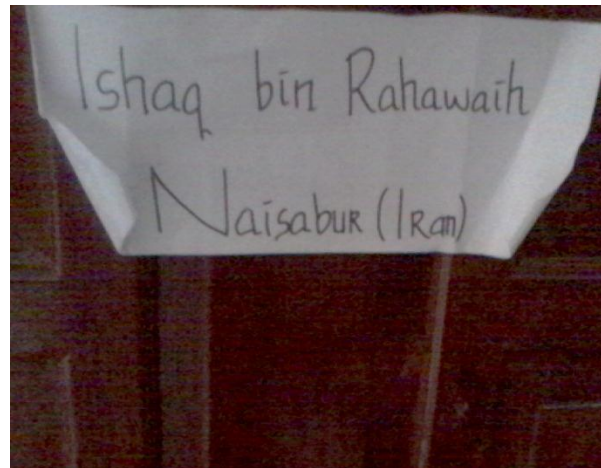 Ishaq bin Rahawaih
Naisabur (Iran)